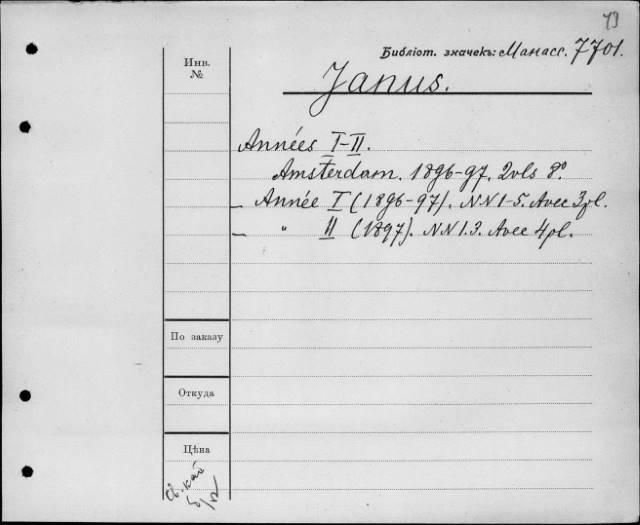 73
Библіот. значекъ: Манасс. 7701.
Инв.
№
Janus.
Années I-II.
Amsterdam. 1896-97. 2 vls 8°.
— Année I (1896-97). NN 1-5. Avec 3 pl.
— " II (1897). NN 1.3. Avec 4 pl.
По заказу
Откуда
Цѣна